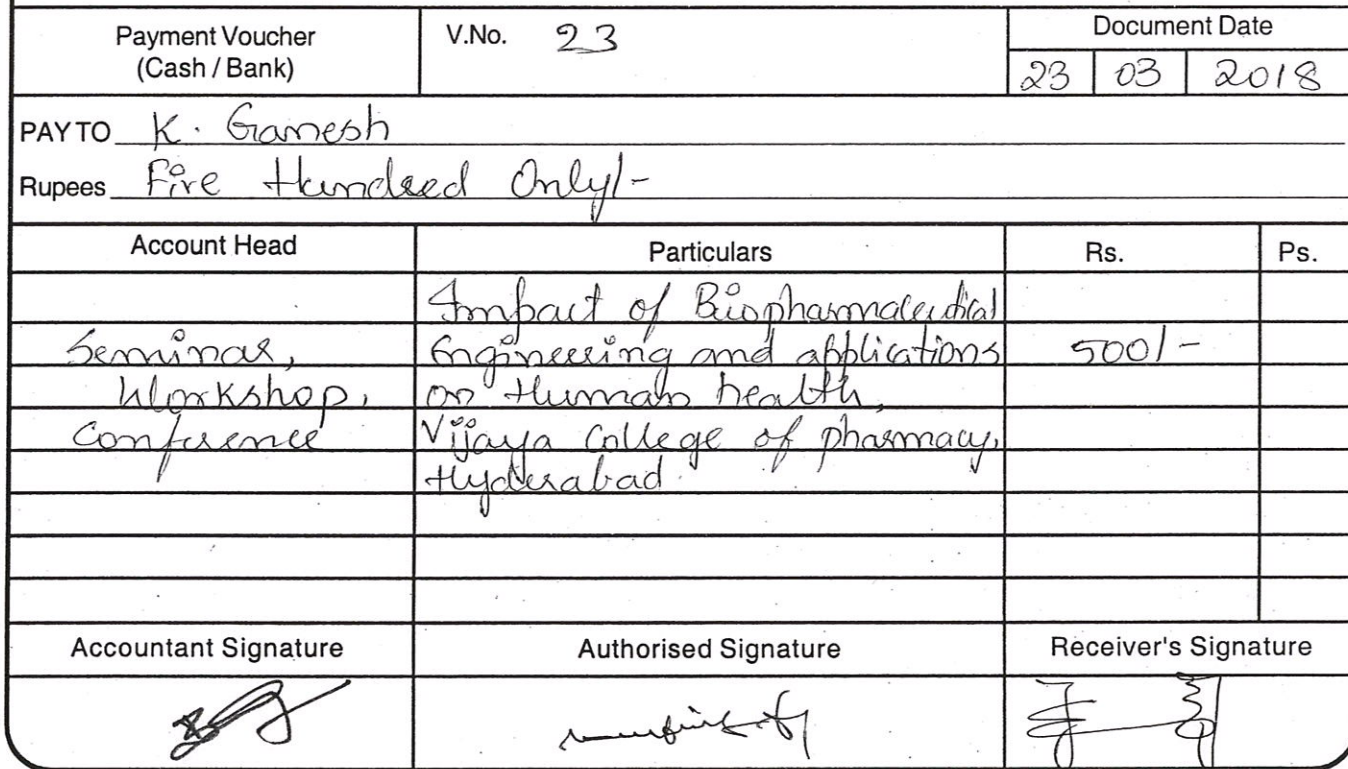 Payment Voucher
(Cash / Bank)
V.No. 23
Document Date
23 03 2018
PAY TO K. Ganesh
Rupees Five Hundred Only/-
Account Head Particulars Rs. Ps.
Impact of Biopharmaceutical
Seminar, Engineering and applications 500/-
Workshop, on Human health,
Conference Vijaya College of pharmacy,
Hyderabad.
Accountant Signature Authorised Signature Receiver's Signature